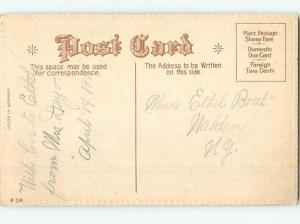 Post Card
Place Postage
Stamp Here
Domestic
One Cent
Foreign
Two Cents
This space may be used
for correspondence.
The Address to be Written
on this side.
With love to Ethel
from Mrs
April 19.14
Miss Ethel Boat
Walden
N.Y.
MADE IN GERMANY